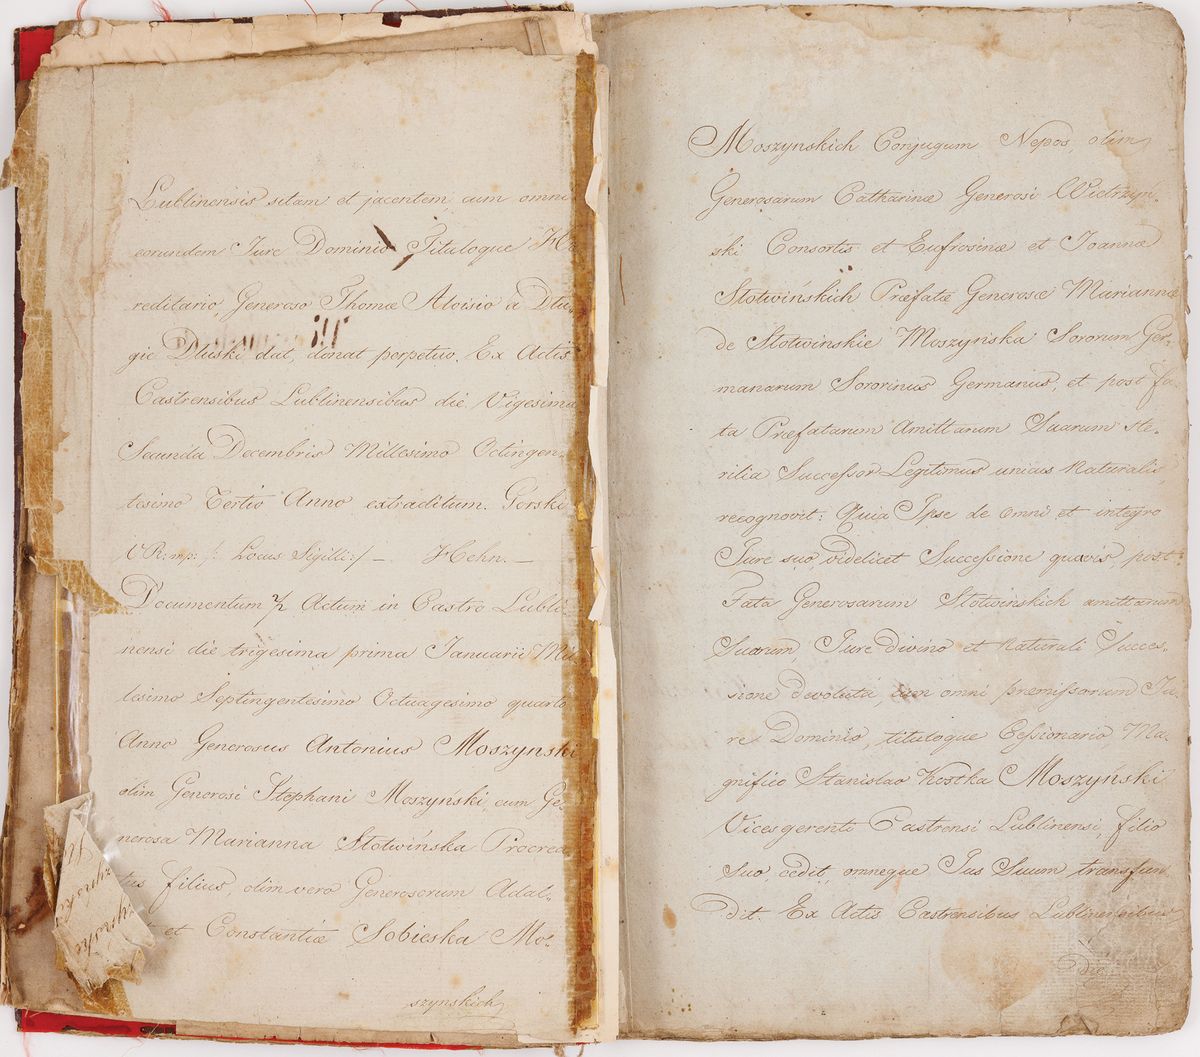 Lublinensis sitam et jacentem cum omni
eorundem Jure Dominio Tituloque He
reditario, Generoso Thomæ Aloisio a Dłu-
gie Dłuski dat, donat perpetuo. Ex Actis
Castrensibus Lublinensibus die Vigesima
Secunda Decembris Millesimo Octingen-
tesimo Tertio Anno extraditum. Górski
VR: mp: /: Locus Sigilli :/ — Hehn. —
Documentum Actum in Castro Lubli-
nensi die trigesima prima Januarii Mil
lesimo Septingentesimo Octuagesimo quarto
Anno Generosus Antonius Moszynski
olim Generosi Stephani Moszynski cum Ge-
nerosa Marianna Słotwińska Procrea
tus filius, olim vero Generosorum Adal-
et Constantiæ Sobieska Mo-
szynskich
Moszynskich Conjugum Nepos, olim
Generosarum Catharinæ Generosi Wietrzyń-
ski Consortis et Eufrosinæ et Joannæ
Słotwińskich Præfatæ Generosæ Mariannæ
de Słotwinskie Moszyńska Sororum Ger-
manarum Sororinus Germanus, et post fa-
ta Præfatarum Amittarum Suarum ste-
rilia Successor Legitimus unicus Naturalis
recognovit: Quia Ipse de omni et integro
Jure suo videlicet Successione quavis, post
Fata Generosarum Słotwińskich amittarum
Suarum, Jure Divino et Naturali Succes-
sione devoluta, cum omni premissorum Ju-
re Dominio, tituloque Cessionario, Ma-
gnifico Stanislao Kostka Moszyński
Vicesgerenti Castrensi Lublinensi, filio
suo, cedit, omneque Jus Suum transfun
dit. Ex Actis Castrensibus Lublinensibus
die